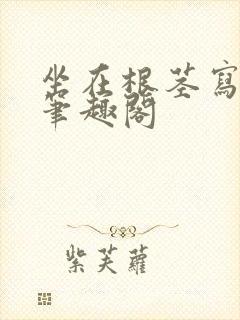 坐在根莖寫
筆趣閣
紫芙蘿